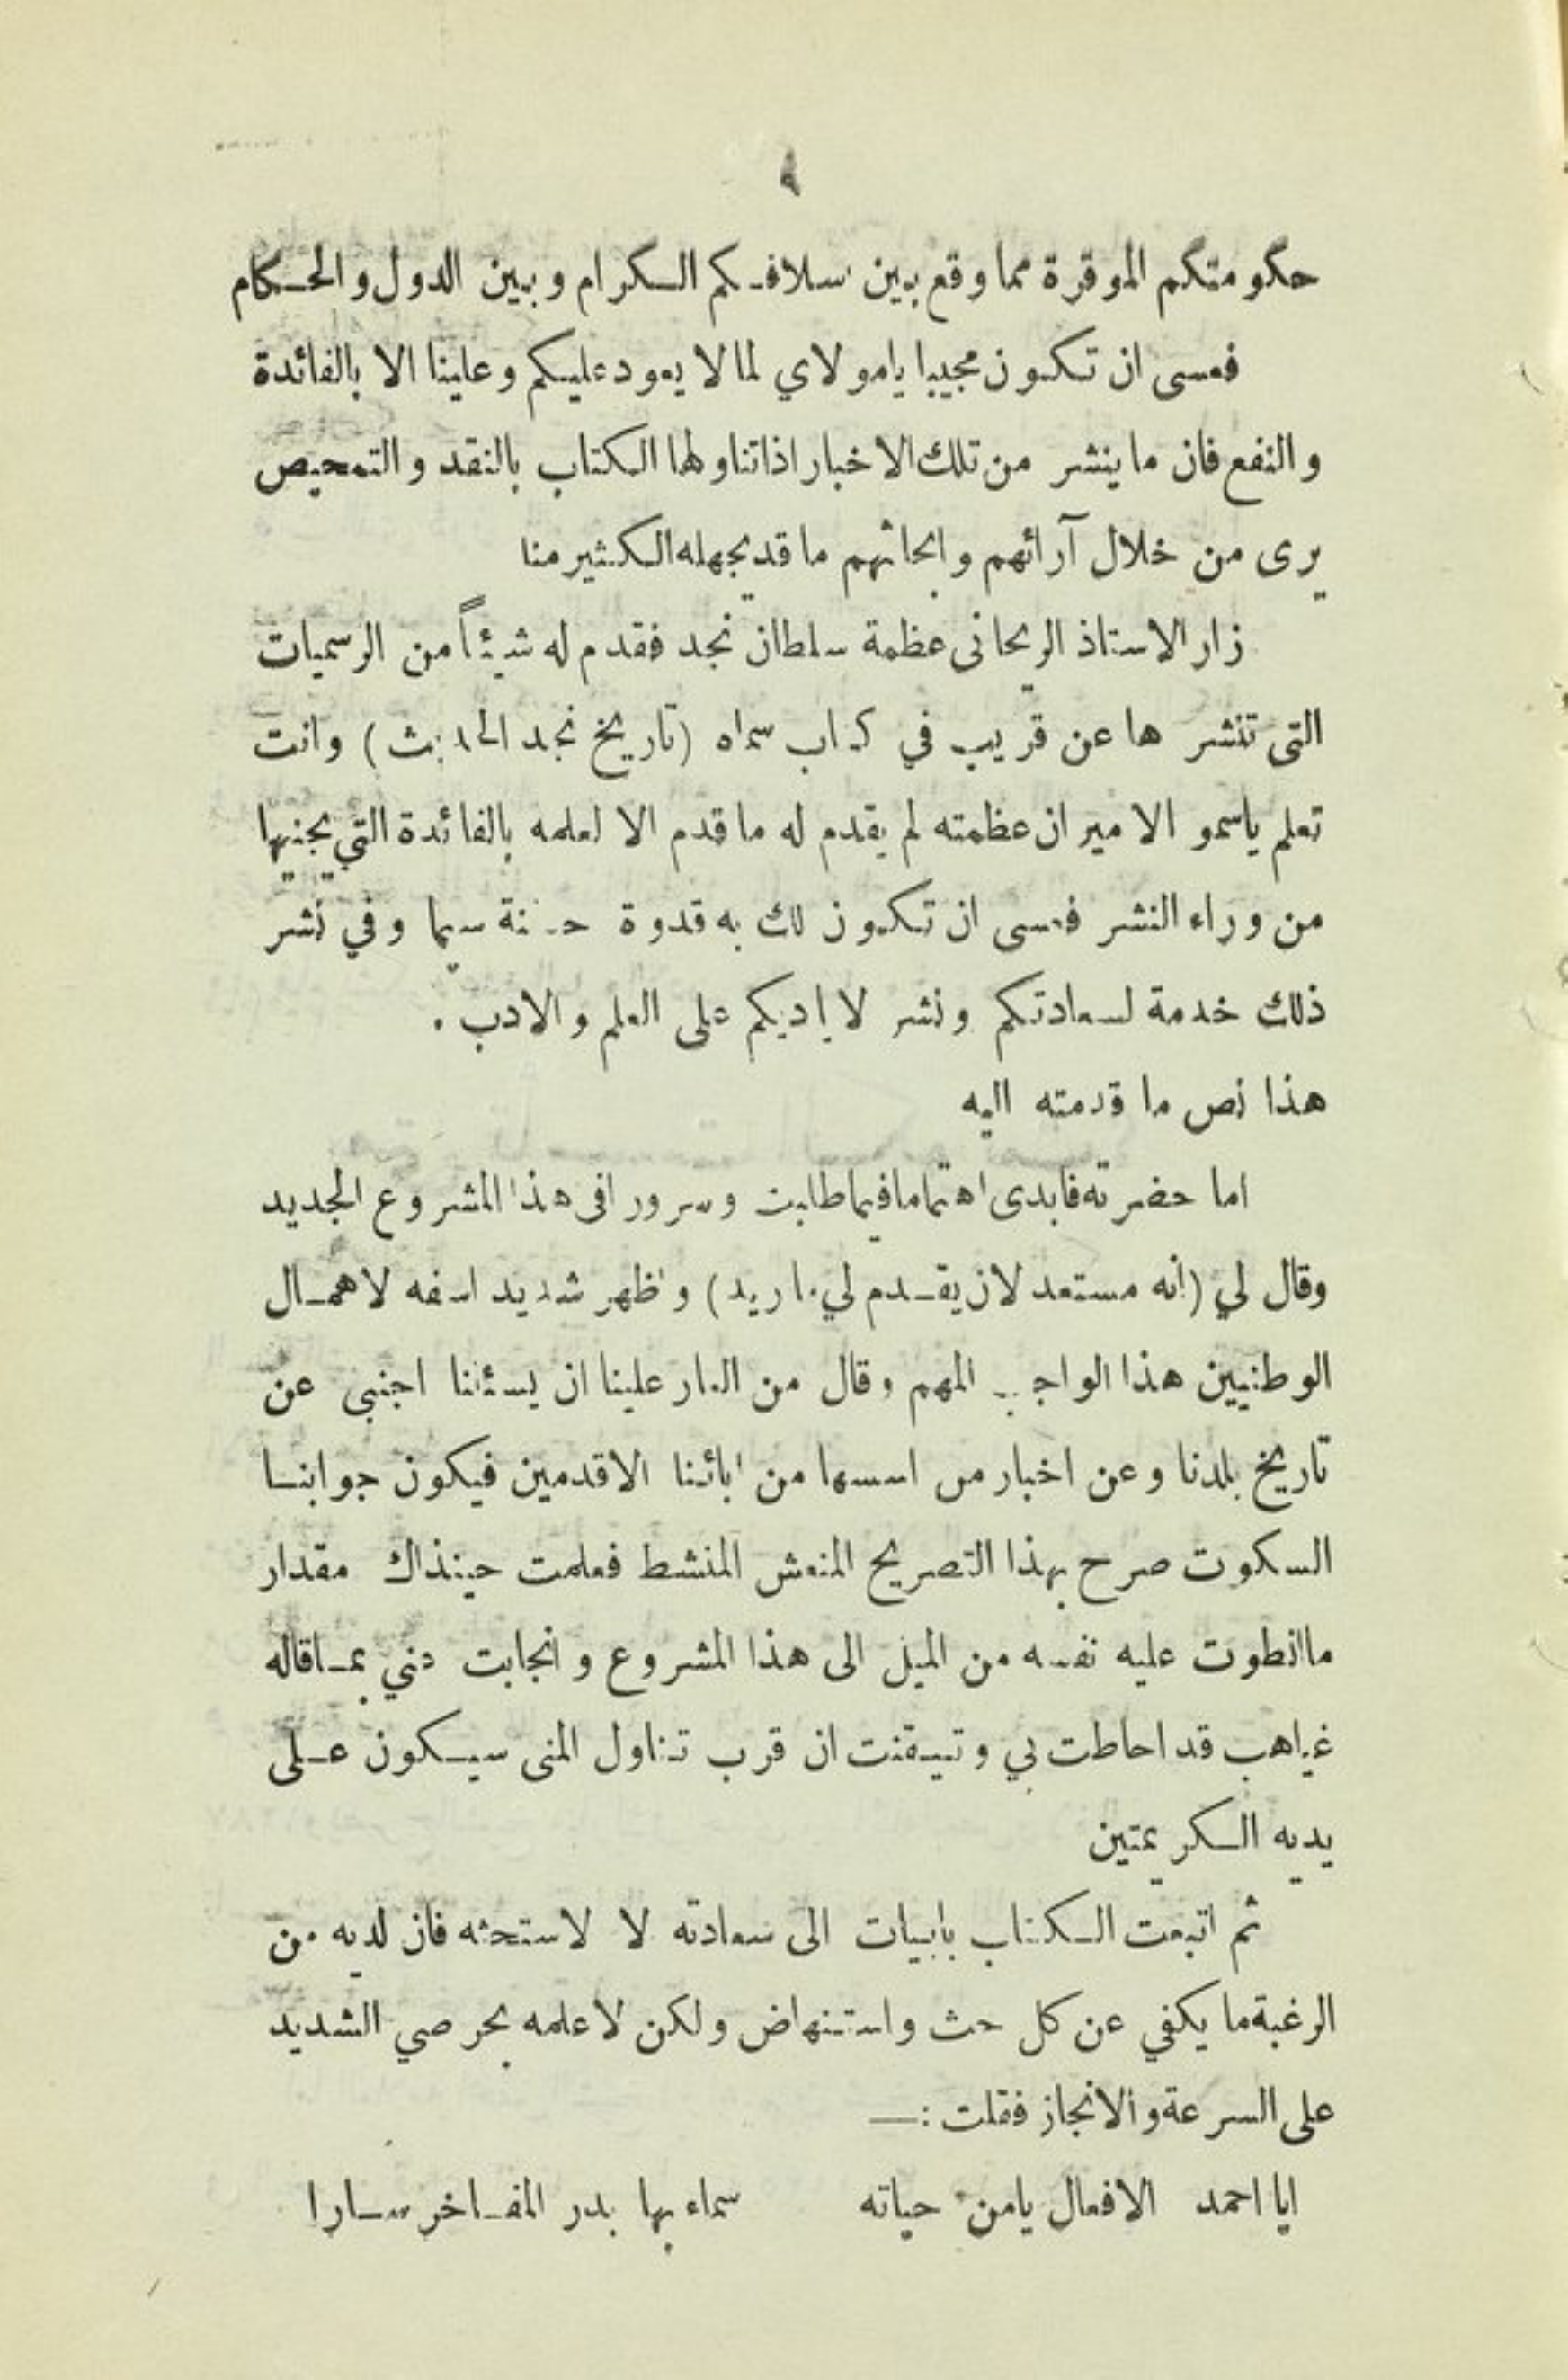 ٩
حكومتكم الموقرة مما وقع بين اسلافكم الكرام وبين الدول والحكام
فعسى ان تكون مجيبا يامولاي لما لا يعود عليكم وعلينا الا بالفائدة
والنفع فان ما ينشر من تلك الاخبار اذا تناولها الكتاب بالنقد والتمحيص
يرى من خلال آرائهم وابحاثهم ما قد يجهله الكثير منا
زار الاستاذ الريحاني عظمة سلطان نجد فقدم له شيئاً من الرسميات
التى تنشر ها عن قريب في كتاب سماه (تاريخ نجد الحديث) وانت
تعلم ياسمو الامير ان عظمته لم يقدم له ما قدم الا لعلمه بالفائدة التي يجنيها
من وراء النشر فعسى ان تكون لك به قدوة حسنة سيما وفي نشر
ذلك خدمة لسعادتكم ونشر لاياديكم على العلم والادب .
هذا نص ما قدمته اليه
اما حضرته فابدى اهتماما فيما طلبت وسرورا فى هذا المشروع الجديد
وقال لي (انه مستعد لان يقدم لي ما اريد) واظهر شديد اسفه لاهمال
الوطنيين هذا الواجب المهم وقال من العار علينا ان يسئلنا اجنبى عن
تاريخ بلدنا وعن اخبار من اسسها من ابائنا الاقدمين فيكون جوابنا
السكوت صرح بهذا التصريح المنعش المنشط فعلمت حينذاك مقدار
ما انطوت عليه نفسه من الميل الى هذا المشروع وانجابت عني بما قاله
غياهب قد احاطت بي وتيقنت ان قرب تناول المنى سيكون على
يديه الكريمتين
ثم اتبعت الكتاب بابيات الى سعادته لا لاستحثه فان لديه من
الرغبة ما يكفي عن كل حث واستنهاض ولكن لاعلمه بحرصي الشديد
على السرعة والانجاز فقلت :—
ايا احمد الافعال يامن حياته سماء بها بدر المفاخر سارا